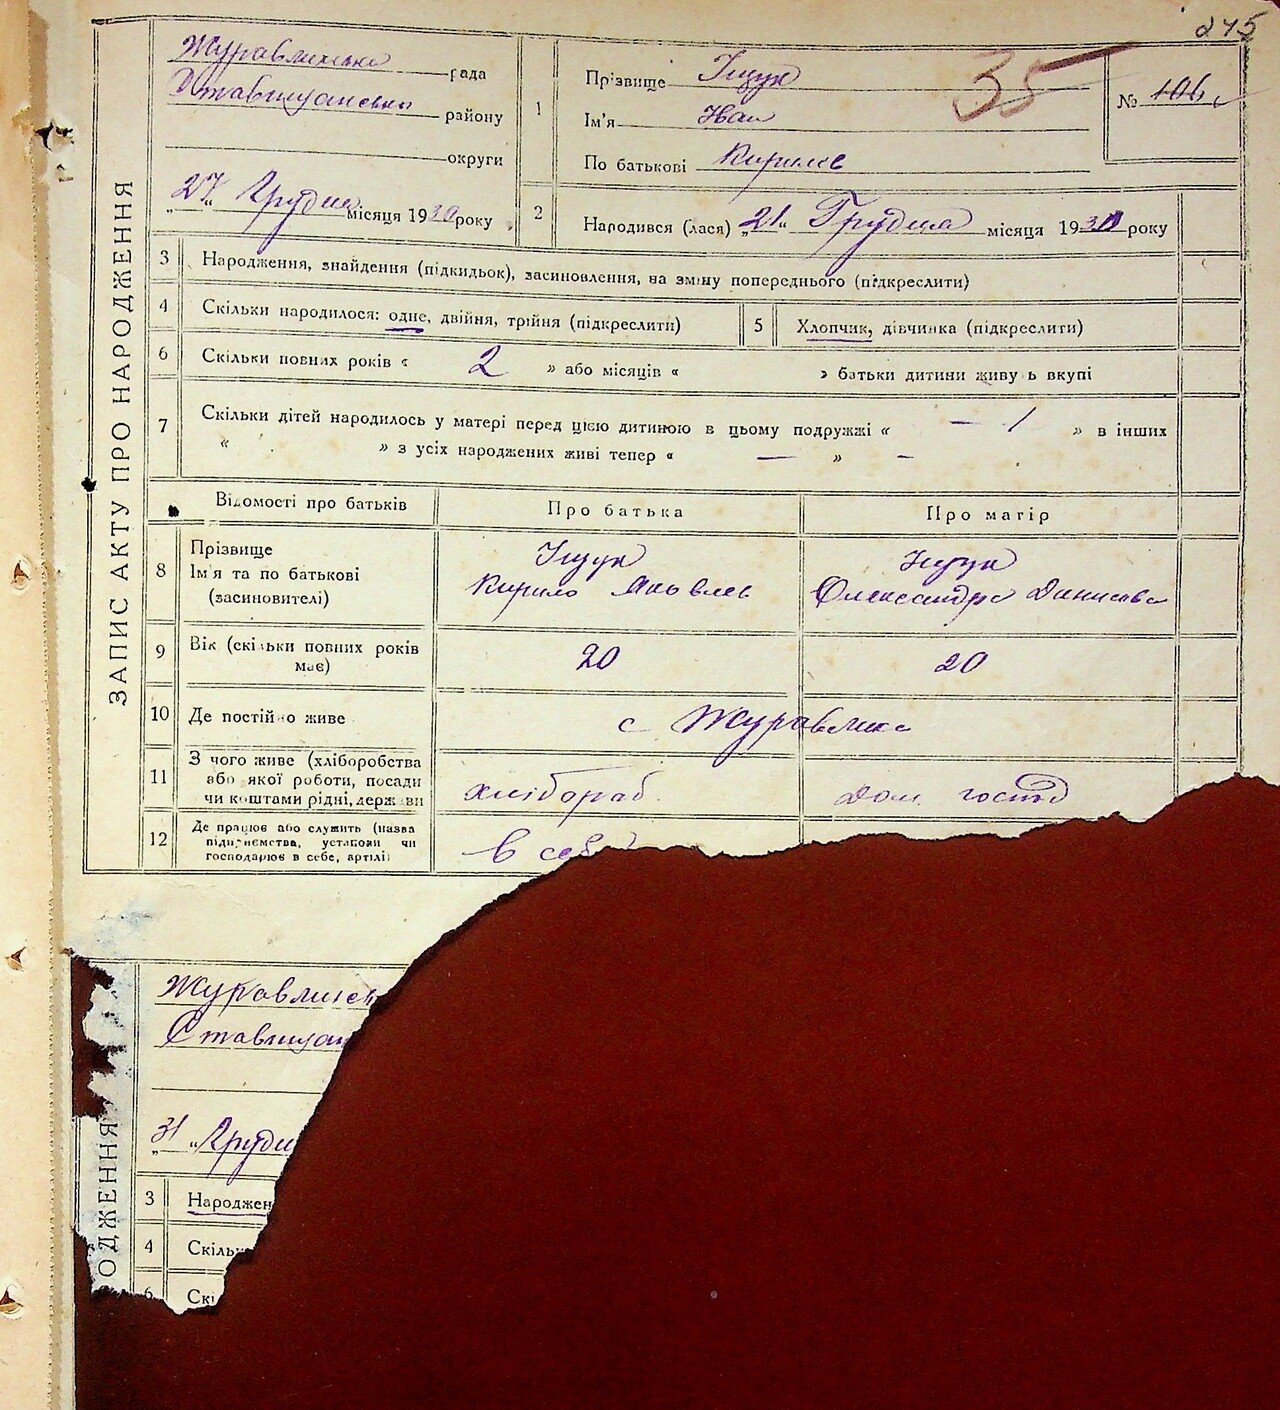 245
ЗАПИС АКТУ ПРО НАРОДЖЕННЯ
Журавлиська рада
Ставищанська району
округи
„27“ Грудня місяця 1930 року
1
Прізвище Іщук
Ім'я Іван
По батькові Кирилів
35
№ 106
2
Народився (лася) „21“ Грудня місяця 1930 року
3 Народження, знайдення (підкидьок), засиновлення, на зміну попереднього (підкреслити)
4 Скільки народилося: одне, двійня, трійня (підкреслити)
5 Хлопчик, дівчинка (підкреслити)
6 Скільки повних років « 2 » або місяців « » батьки дитини живуть вкупі
7 Скільки дітей народилось у матері перед цією дитиною в цьому подружжі « — 1 » в інших
« » з усіх народжених живі тепер « — » -
Відомості про батьків Про батька Про матір
8 Прізвище Іщук Іщук
Ім'я та по батькові Кирило Яковлев Олександра Данилова
(засиновителі)
9 Вік (скільки повних років 20 20
має)
10 Де постійно живе с Журавлиха
11 З чого живе (хліборобства
або якої роботи, посади хлібораб дом. господ
чи коштами рідні, держави
12 Де працює або служить (назва
підприємства, установи чи в себ
господарює в себе, артілі)
ОДЖЕННЯ
Журавлиськ
Ставищан
„31 “ Грудн
3 Народжен
4 Скільк
6 Скі